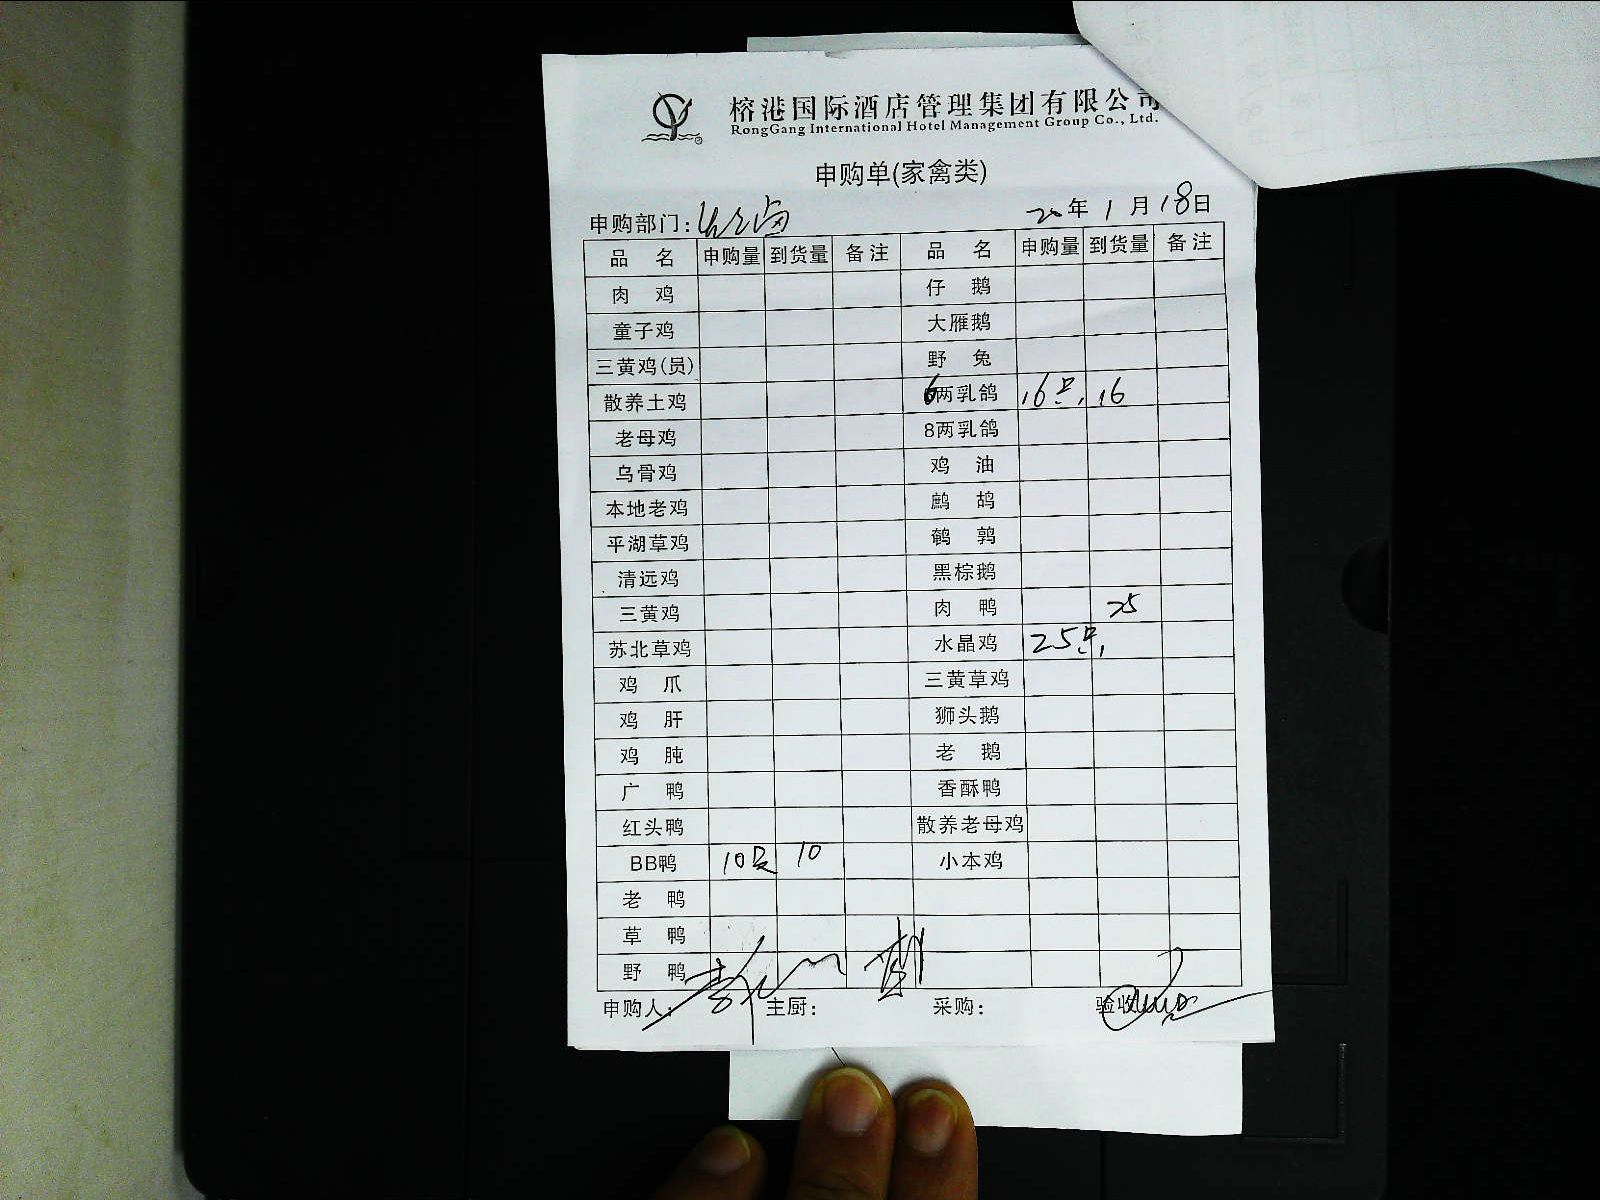 榕港国际酒店管理集团有限公司
RongGang International Hotel Management Group Co., Ltd.
申购单(家禽类)
申购部门: 20年1月18日
品名 申购量 到货量 备注 品名 申购量 到货量 备注
肉鸡 仔鹅
童子鸡 大雁鹅
三黄鸡(员) 野兔
散养土鸡 6两乳鸽 16只. 16
老母鸡 8两乳鸽
乌骨鸡 鸡油
本地老鸡 鹧鸪
平湖草鸡 鹌鹑
清远鸡 黑棕鹅
三黄鸡 肉鸭 25
苏北草鸡 水晶鸡 25只.
鸡爪 三黄草鸡
鸡肝 狮头鹅
鸡肫 老鹅
广鸭 香酥鸭
红头鸭 散养老母鸡
BB鸭 10只 10 小本鸡
老鸭
草鸭
野鸭
申购人: 主厨: 采购: 验收